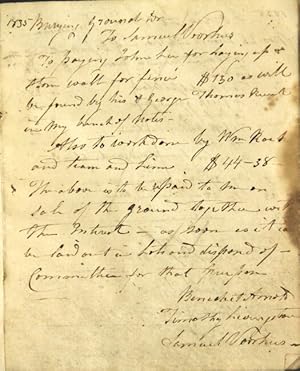 1835 Burying Ground Dr
To Samuel Voorhes
To paying John Lee for laying up
Stone wall for fence $130 as will
be found by his & George Thomas
in My bunch of Notes -
Also to work done by Wm
and team and hire $44-38
The above is to be repaid to me on
sale of the ground together with
the Interest - as soon as it can
be laid out in Lots and disposed of -
Committee for that purpose
Benedict Arnold
Timothy Livingston
Samuel Voorhes -